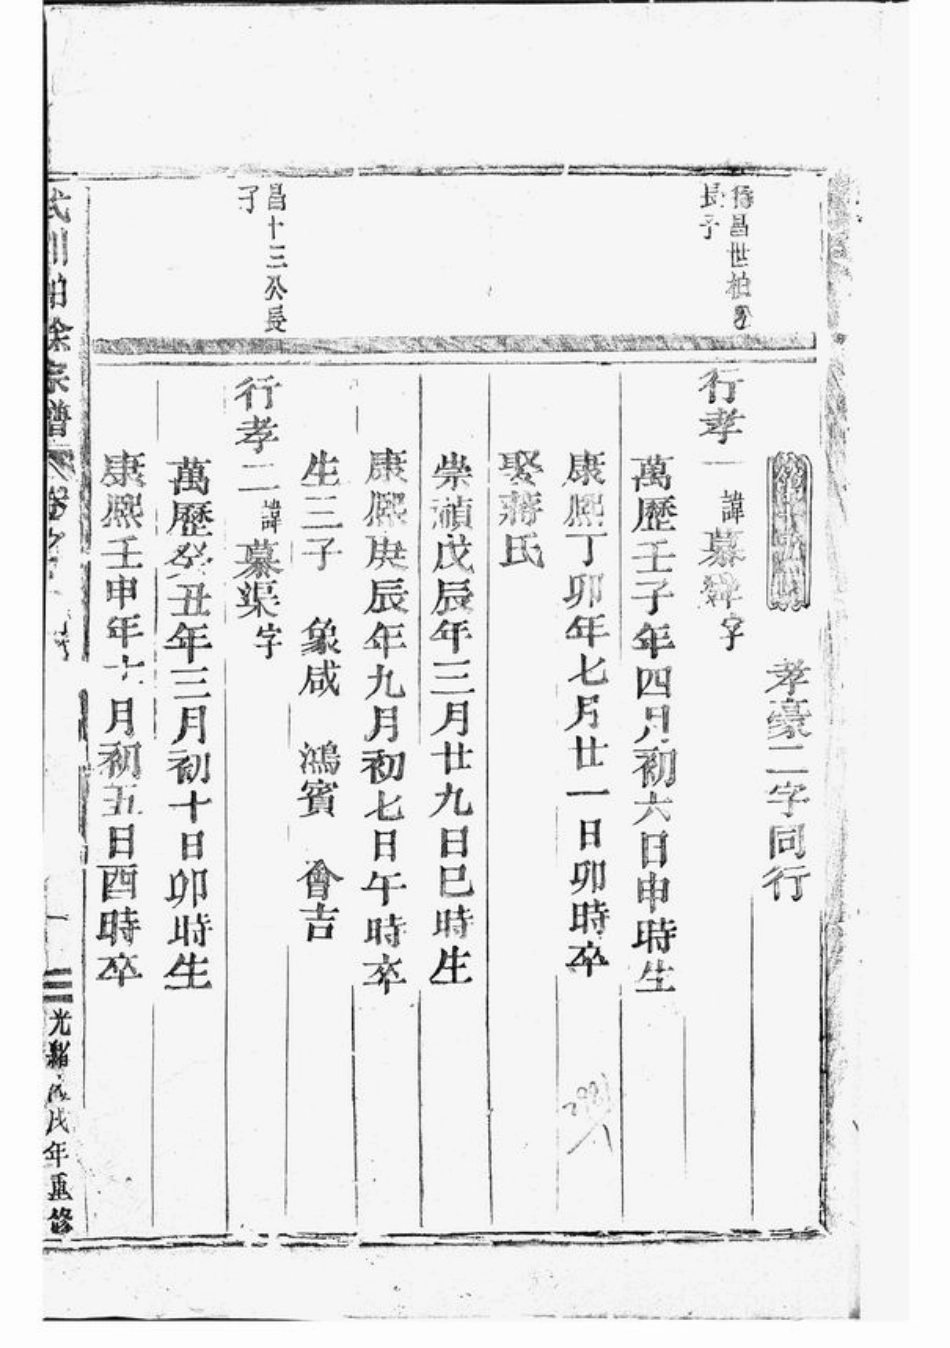 孝豪二字同行
昌世柏
長子
行孝一 諱慕 字
萬歷壬子年四月初六日申時生
康熙丁卯年七月廿一日卯時卒
娶蔣氏
崇禎戊辰年三月廿九日巳時生
康熙庚辰年九月初七日午時卒
生三子 象咸 鴻賓 會吉
昌十三公長
子
行孝二 諱慕渠字
萬歷癸丑年三月初十日卯時生
康熙壬申年 月初五日酉時卒
川 徐宗譜 卷之
一
光緒 戌年重修